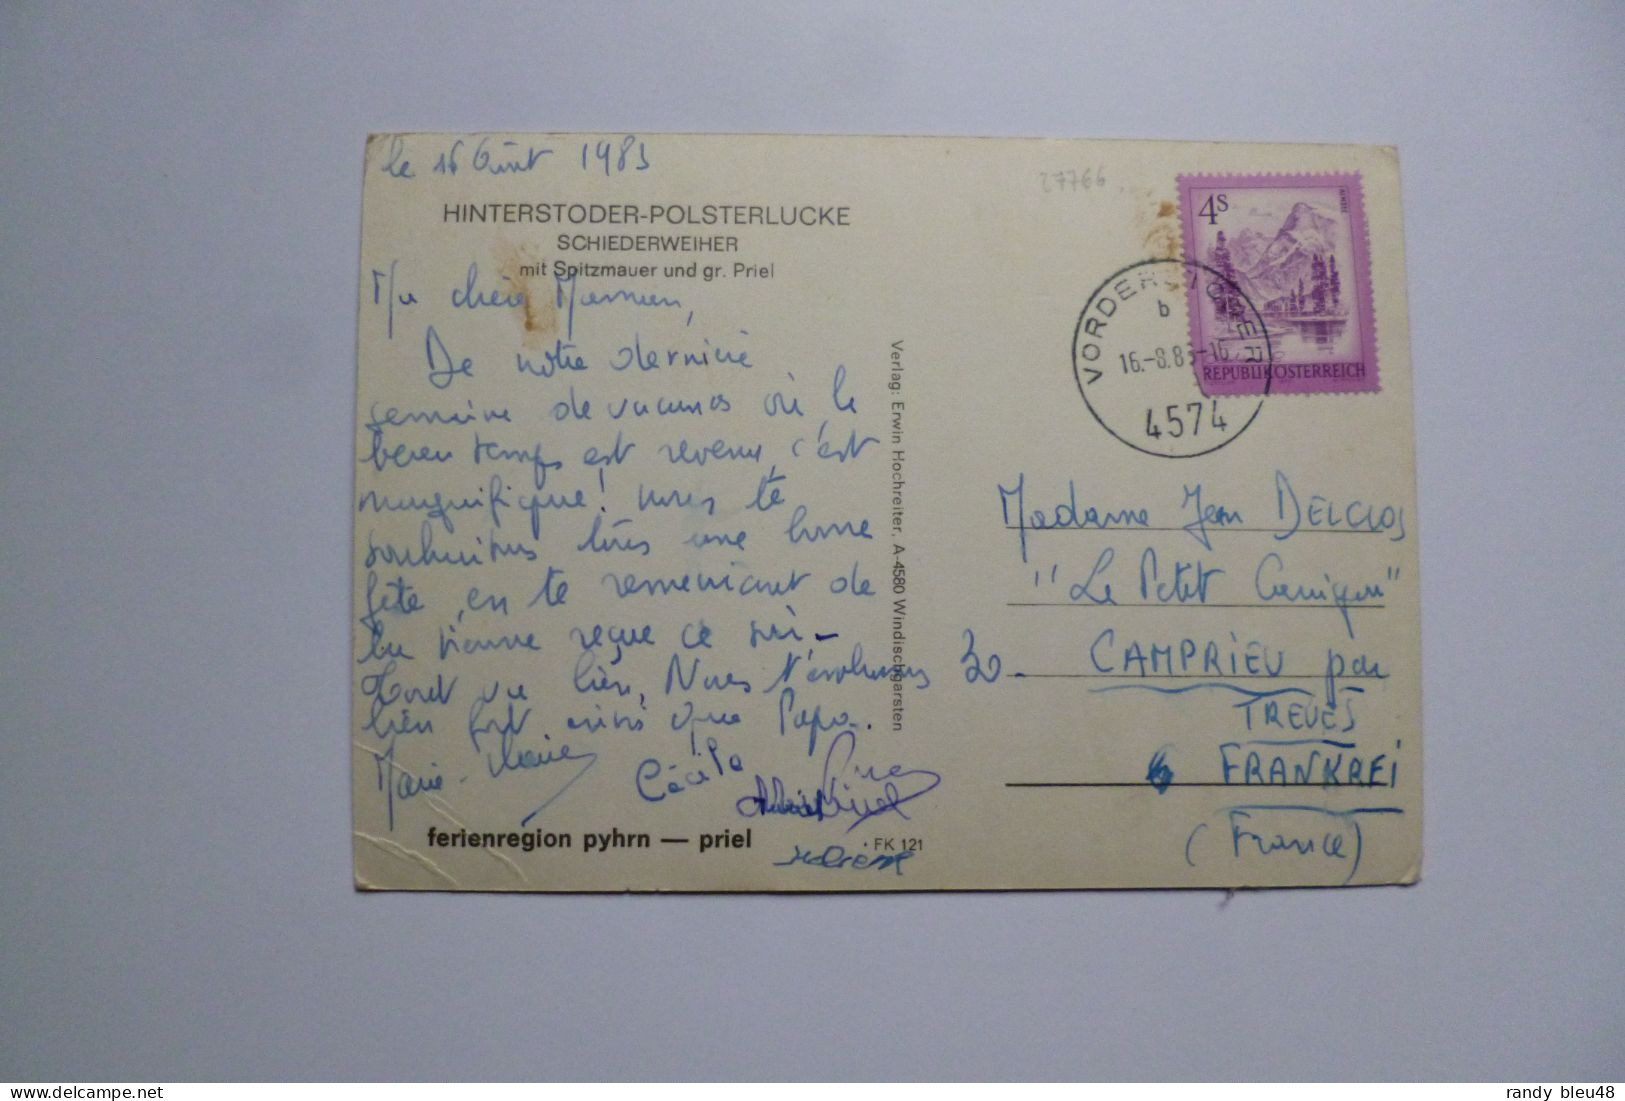 le 16 Août 1983
27766
HINTERSTODER-POLSTERLUCKE
SCHIEDERWEIHER
mit Spitzmauer und gr. Priel
Ma chère Maman,
De notre dernière
semaine de vacances où le
beau temps est revenu, c'est
magnifique! nous te
souhaitons très une bonne
fête, en te remerciant de
la tienne reçue ce
bien fort ainsi que Papa.
Marie-Claire
Cécile
ferienregion pyhrn — priel
FK 121
Verlag: Erwin Hochreiter, A-4580 Windischgarsten
4S
ALMSEE
REPUBLIK ÖSTERREICH
VORDERSTODER
b
16.-8.83-16
4574
Madame Jean DELCLOS
"Le Petit
30- CAMPRIEU par
TREVES
FRANKREI
(France)
randy bleu48